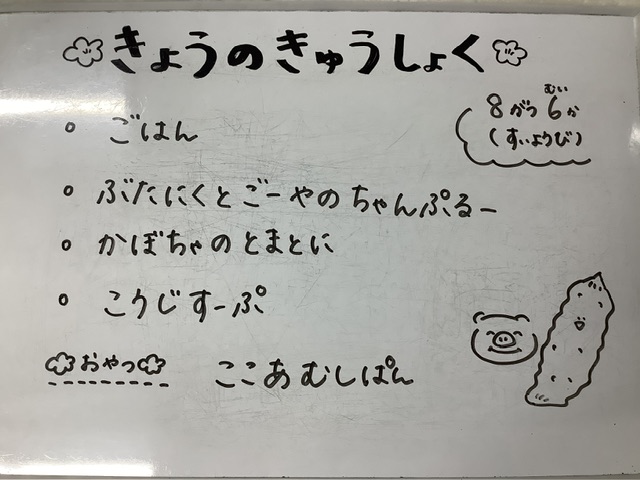 きょうのきゅうしょく
8がつ6か
むい
(すいようび)
ごはん
ぶたにくとごーやのちゃんぷるー
かぼちゃのとまとに
こうじすーぷ
おやつ ここあむしぱん